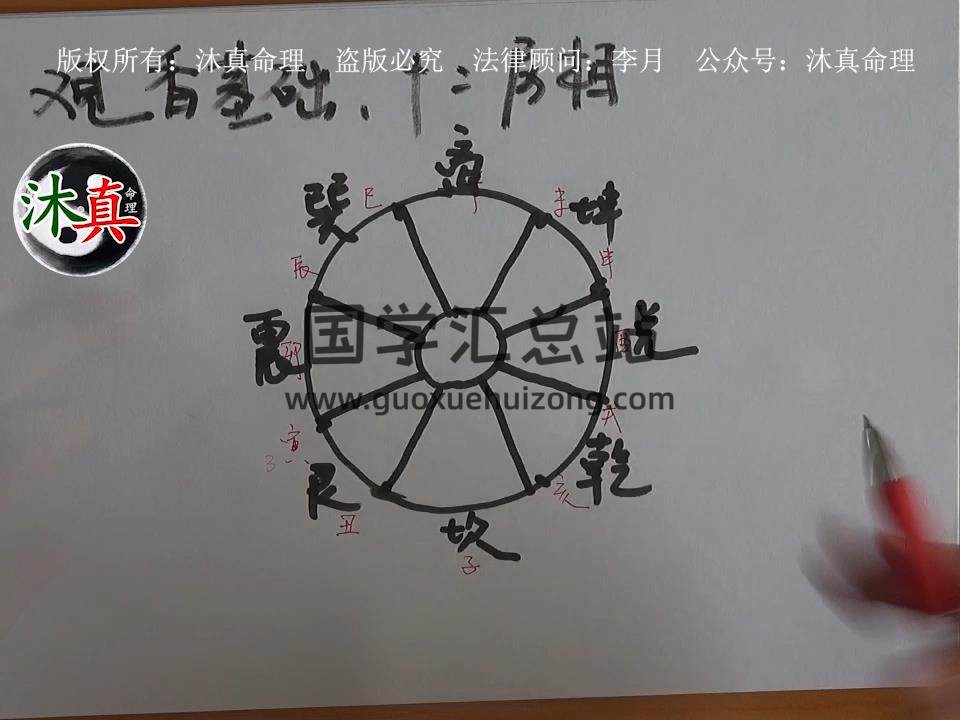 版权所有：沐真命理 盗版必究 法律顾问：李月 公众号：沐真命理
观香基础、十二房相
沐真命理
巽
巳
未
坤
辰
申
震
卯
国学汇总站
兑
酉
www.guoxuehuizong.com
戌
寅
乾
艮
亥
丑
坎
子